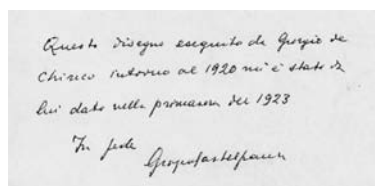 Questo disegno eseguito da Giorgio de
Chirico intorno al 1920 mi è stato da
lui dato nella primavera del 1923
In fede